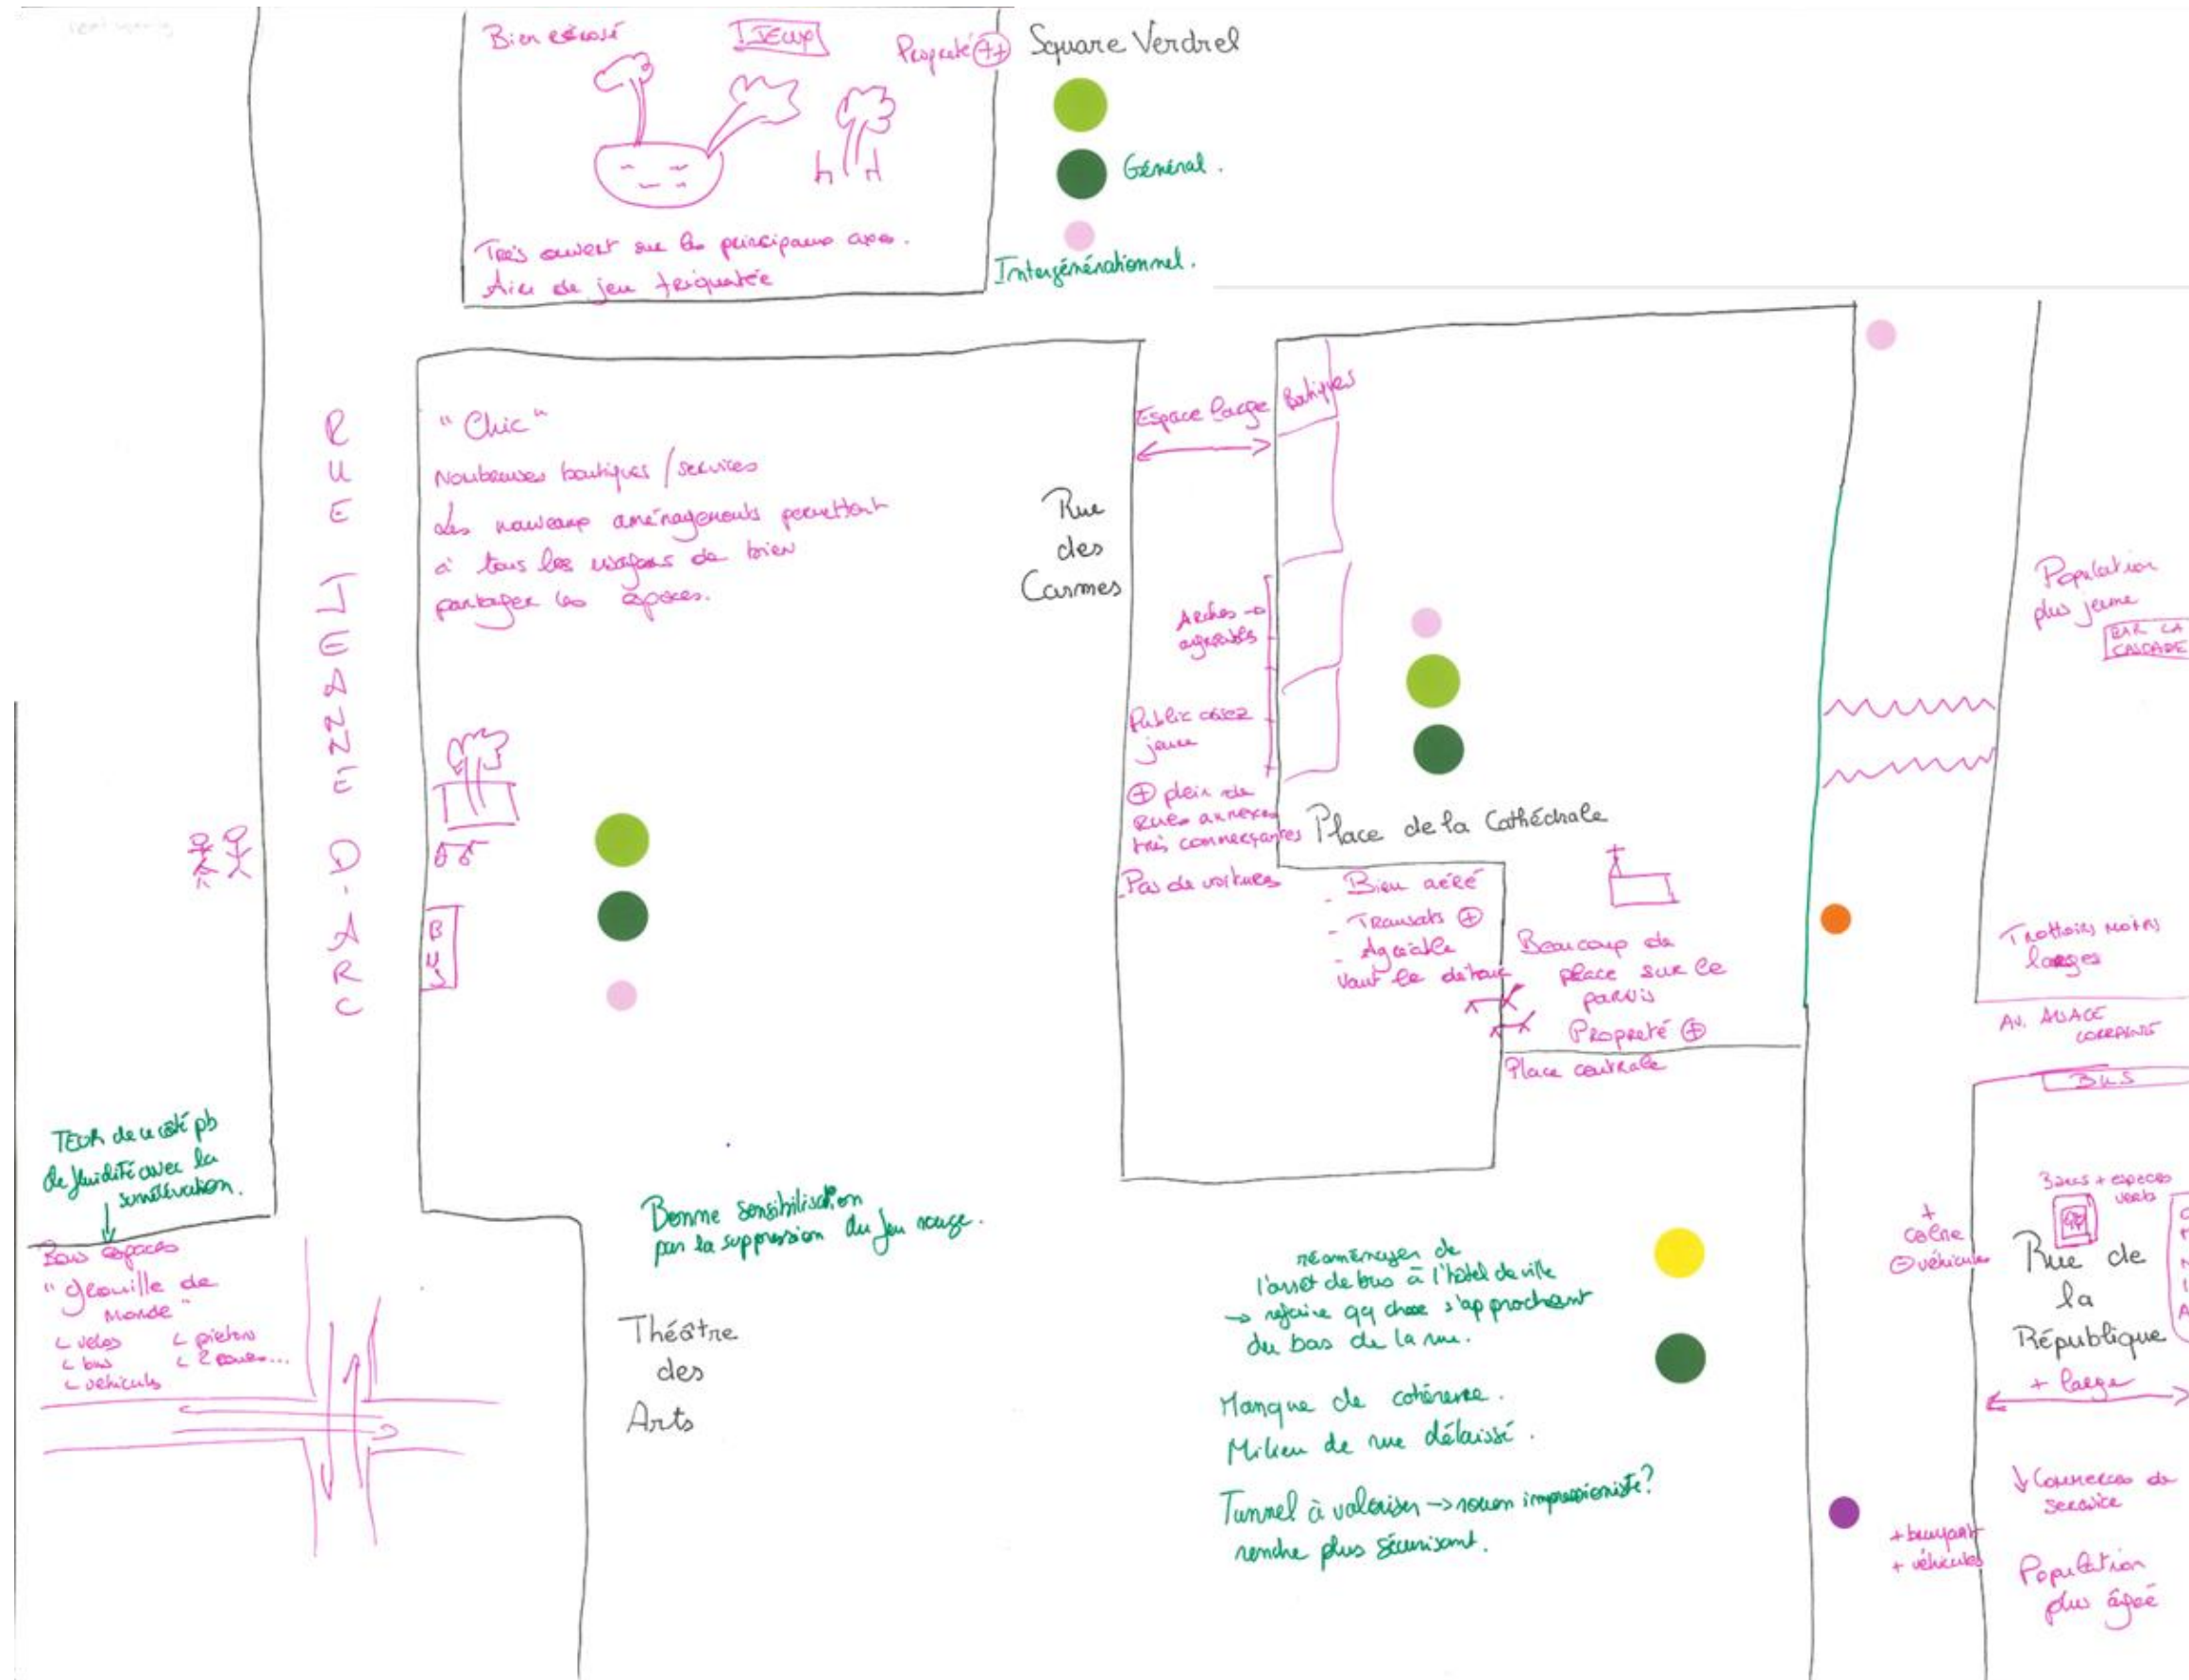 Bien
JEUX
Propreté ++
Square Verdrel
Général.
Intergénérationnel.
Très ouvert sur les principaux axes.
Aire de jeu
RUE JEANNE D'ARC
"Chic"
Noubreuses boutiques / services
Les nouveaux aménagements permettant
à tous les usagers de bien
partager les espaces.
BUS
Rue
des
Carmes
Espace large
Boutiques
Arches →
agréables
Public assez
jeune
+ plein de
rues annexes
très commerçantes
- Pas de voitures
Place de la Cathédrale
- Bien aéré
- Transats +
- Agréable
vaut le détour
Beaucoup de
place sur le
parvis
Propreté +
Place centrale
Population
plus jeune
BAR LA
CASCADE
Trottoirs moins
larges
AV. ALSACE
LORRAINE
BUS
TEOR de ce côté pb
de fluidité avec la
surélévation.
Bons espaces
"grouille de
monde"
vélos
piétons
bus
2 roues...
véhicules
Bonne sensibilisation
par la suppression du feu rouge.
Théâtre
des
Arts
réaménager de
l'arrêt de bus à l'hôtel de ville
→ refaire qq chose s'approchant
du bas de la rue.
Manque de cohérence.
Milieu de rue délaissé.
Tunnel à valoriser → rouen impressioniste?
rendre plus sécurisant.
Bancs + espaces
verts
+
calme
- véhicules
Rue de
la
République
+ large
↓ Commerces de
service
+ bruyant
+ véhicules
Population
plus âgée